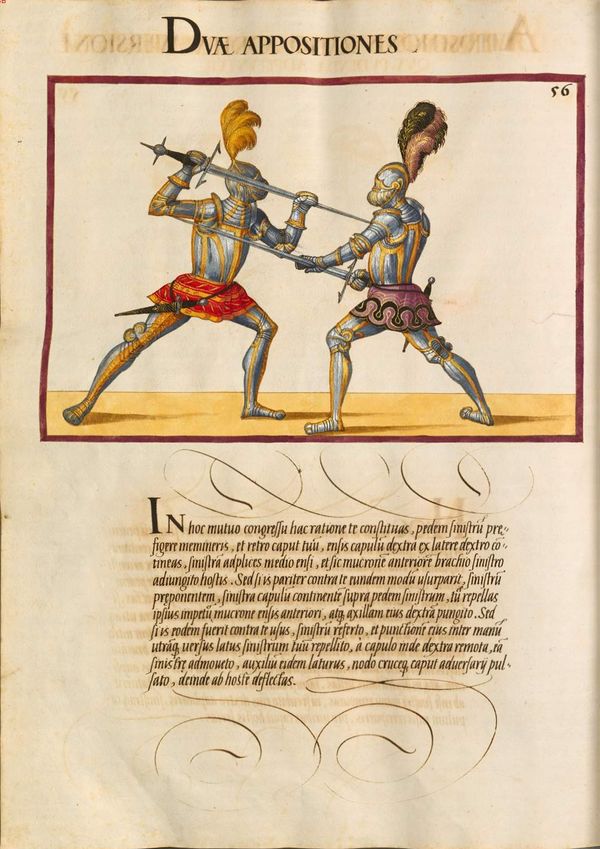 DVÆ APPOSITIONES
56
IN hoc mutuo congressu hac ratione te constituas, pedem sinistrũ pre-
figere memineris, et retro caput tuũ, ensis capulũ dextra ex latere dextro cõ-
tineas, sinistrã adplices medio ensi, et sic mucronẽ anteriorẽ brachio sinistro
adiungito hostis. Sed si is pariter contra te eundem modũ usurparit, sinistrũ
prẹponentem, sinistra capulũ continente supra pedem sinistrum, tũ repellas
ipsius impetũ mucrone ensis anteriori, atq₃ axillam eius dextrã pungito. Sed
si is eodem fuerit contra te usus, sinistrũ referto, et punctionẽ eius inter manũ
utrãq₃ versus latus sinistrum tuũ repellito, à capulo inde dextra remota, eã
sinistrẹ admoueto, auxiliũ eidem laturus, nodo cruceq₃ caput aduersarÿ pul-
sato, deinde ab hoste deflectas.